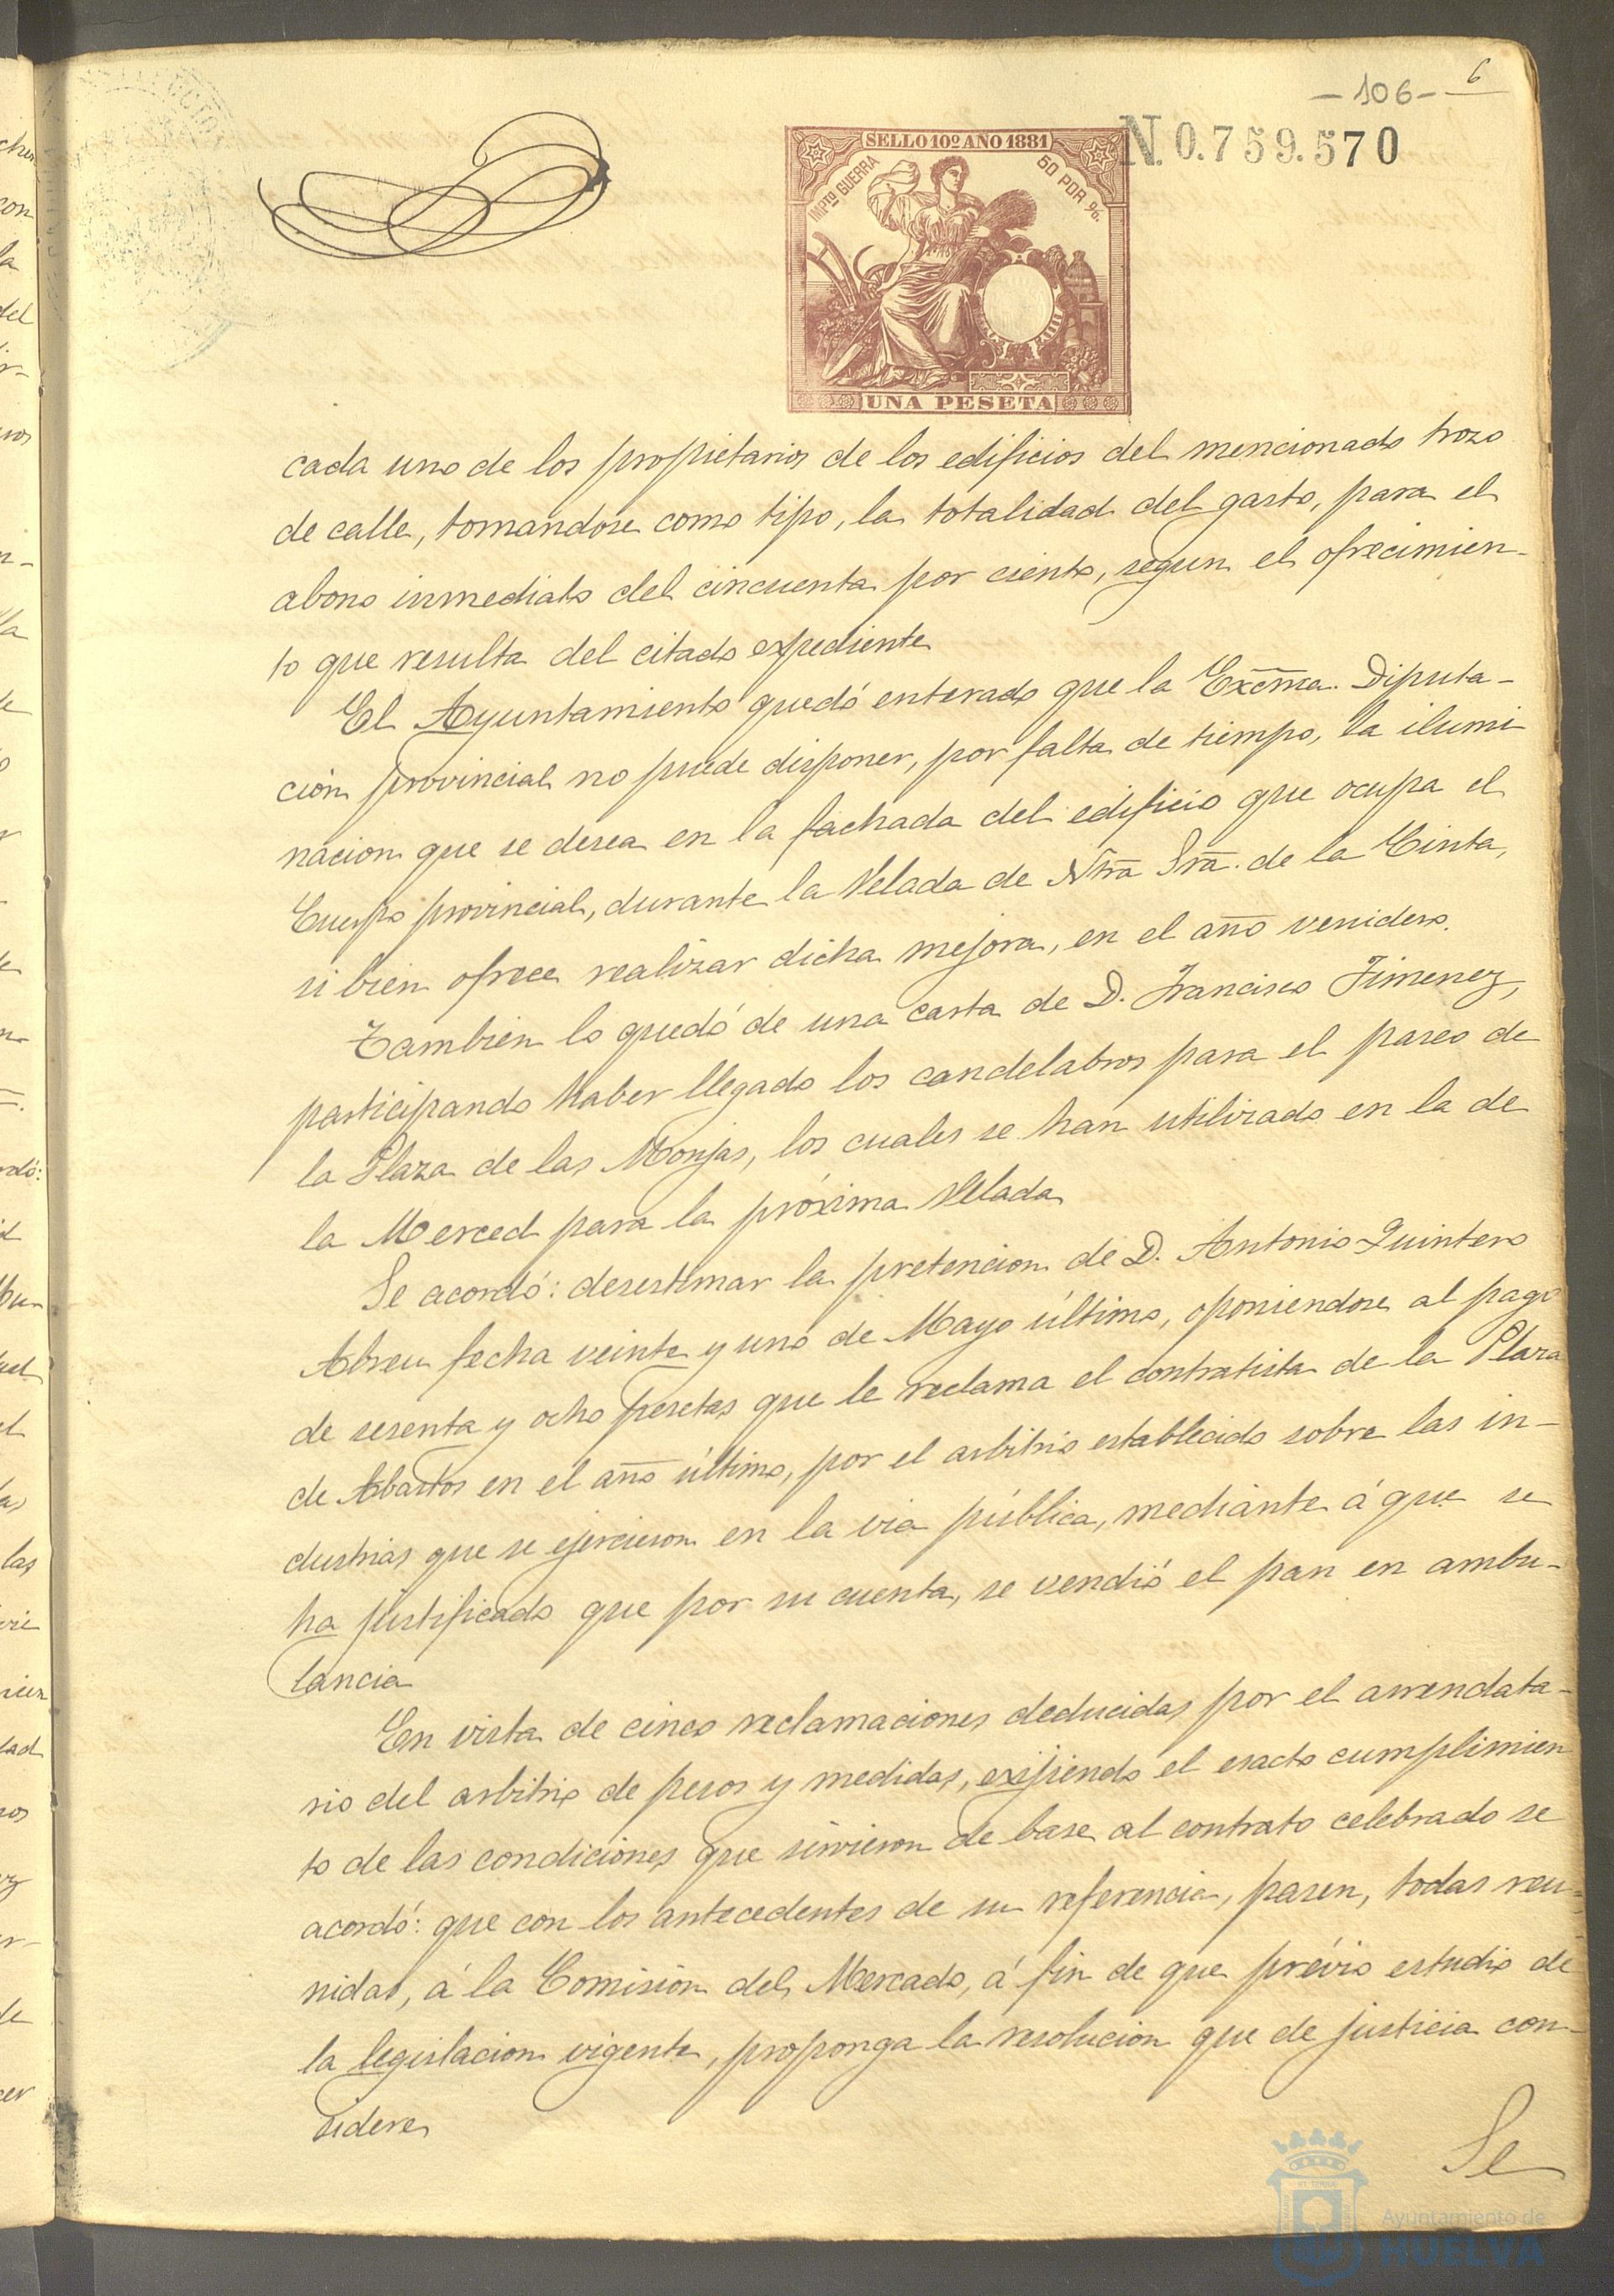 -106-
6
N.0.759.570
SELLO 10º AÑO 1881
IMPTO GUERRA
50 POR %.
UNA PESETA
cada uno de los propietarios de los edificios del mencionado trozo
de calle, tomandose como tipo, la totalidad del gasto, para el
abono inmediato del cincuenta por ciento, segun el ofrecimien-
to que resulta del citado expediente
El Ayuntamiento quedó enterado que la Excma. Diputa-
ción provincial no puede disponer, por falta de tiempo, la ilumi
nacion que se desea en la fachada del edificio que ocupa el
Cuerpo provincial, durante la Velada de Ntra Sra. de la Cinta,
si bien ofrece realizar dicha mejora, en el año venidero.
Tambien lo quedó de una carta de D. Francisco Jimenez,
participando haber llegado los candelabros para el paseo de
la Plaza de las Monjas, los cuales se han utilizado en la de
la Merced para la próxima Velada
Se acordó: desestimar la pretencion de D. Antonio Quintero
Abreu fecha veinte y uno de Mayo último, oponiendose al pago
de sesenta y ocho pesetas que le reclama el contratista de la Plaza
de Abastos en el año último, por el arbitrio establecido sobre las in-
dustrias que se ejercieron en la via pública, mediante á que se
ha justificado que por su cuenta, se vendió el pan en ambu-
lancia
En vista de cinco reclamaciones deducidas por el arrendata-
rio del arbitrio de pesos y medidas, exijiendo el esacto cumplimien
to de las condiciones que sirvieron de base al contrato celebrado se
acordó: que con los antecedentes de su referencia, pasen, todas reu-
nidas, á la Comisión del Mercado, á fin de que prévio estudio de
la legislacion vigente, proponga la resolucion que de justicia con-
sidere
Se
Ayuntamiento de
HUELVA